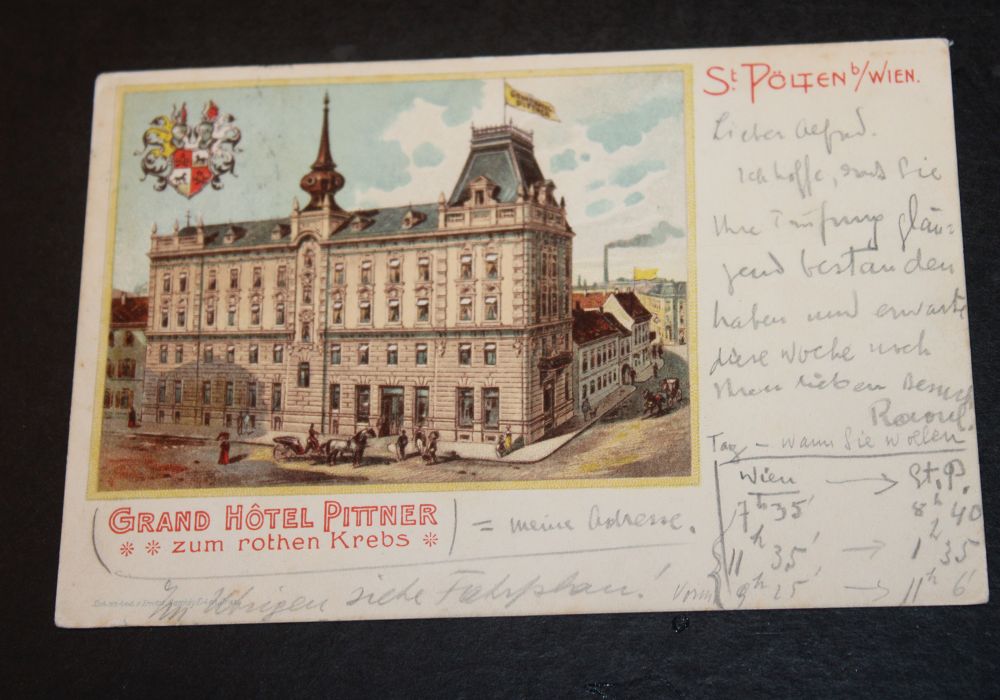 St. PÖLTEN b/WIEN.
Lieber Alfred.
Ich hoffe, dass Sie
Ihre Prüfung glän-
zend bestanden
haben und erwarte
diese Woche noch
Ihren lieben Besuch
Raoul.
Tag – wann Sie wollen
Wien → St. P.
7h 35' 8h 40
11h 35' → 1h 35
Vorm 9h 25' → 11h 6'
GRAND HÔTEL PITTNER
zum rothen Krebs
= meine Adresse.
Im Übrigen siehe Fahrplan!